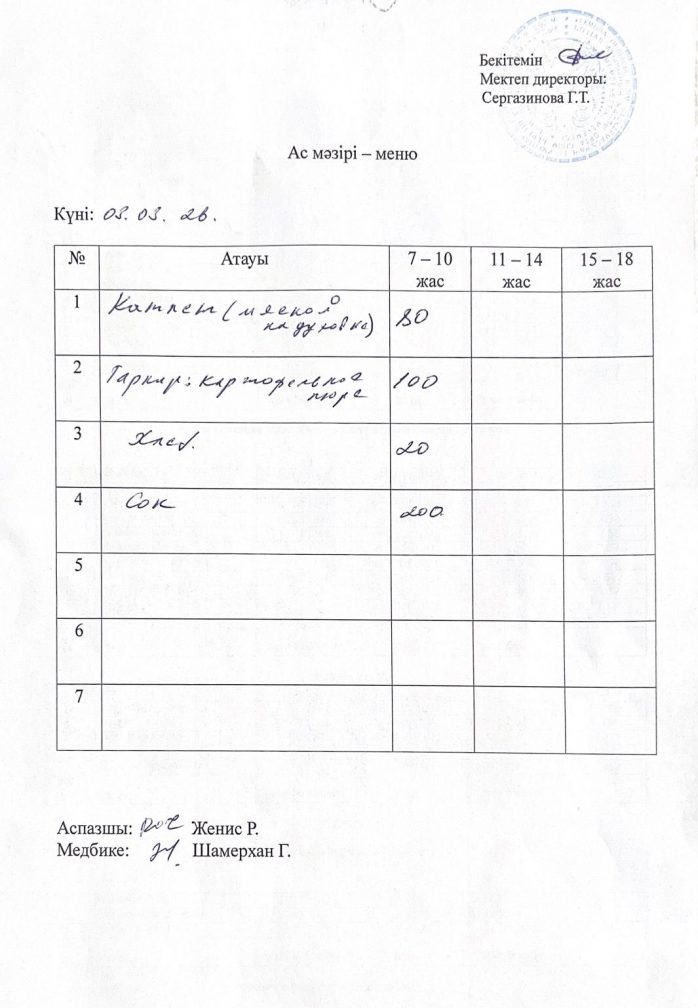 Бекітемін
Мектеп директоры:
Сергазинова Г.Т.
Ас мәзірі – меню
Күні: 03. 03. 26.
№ Атауы 7 – 10 жас 11 – 14 жас 15 – 18 жас
1 Котлет (мясной на духовке) 80
2 Гарнир: картофельное пюре 100
3 Хлеб. 20
4 Сок 200
5
6
7
Аспазшы: Женис Р.
Медбике: Шамерхан Г.